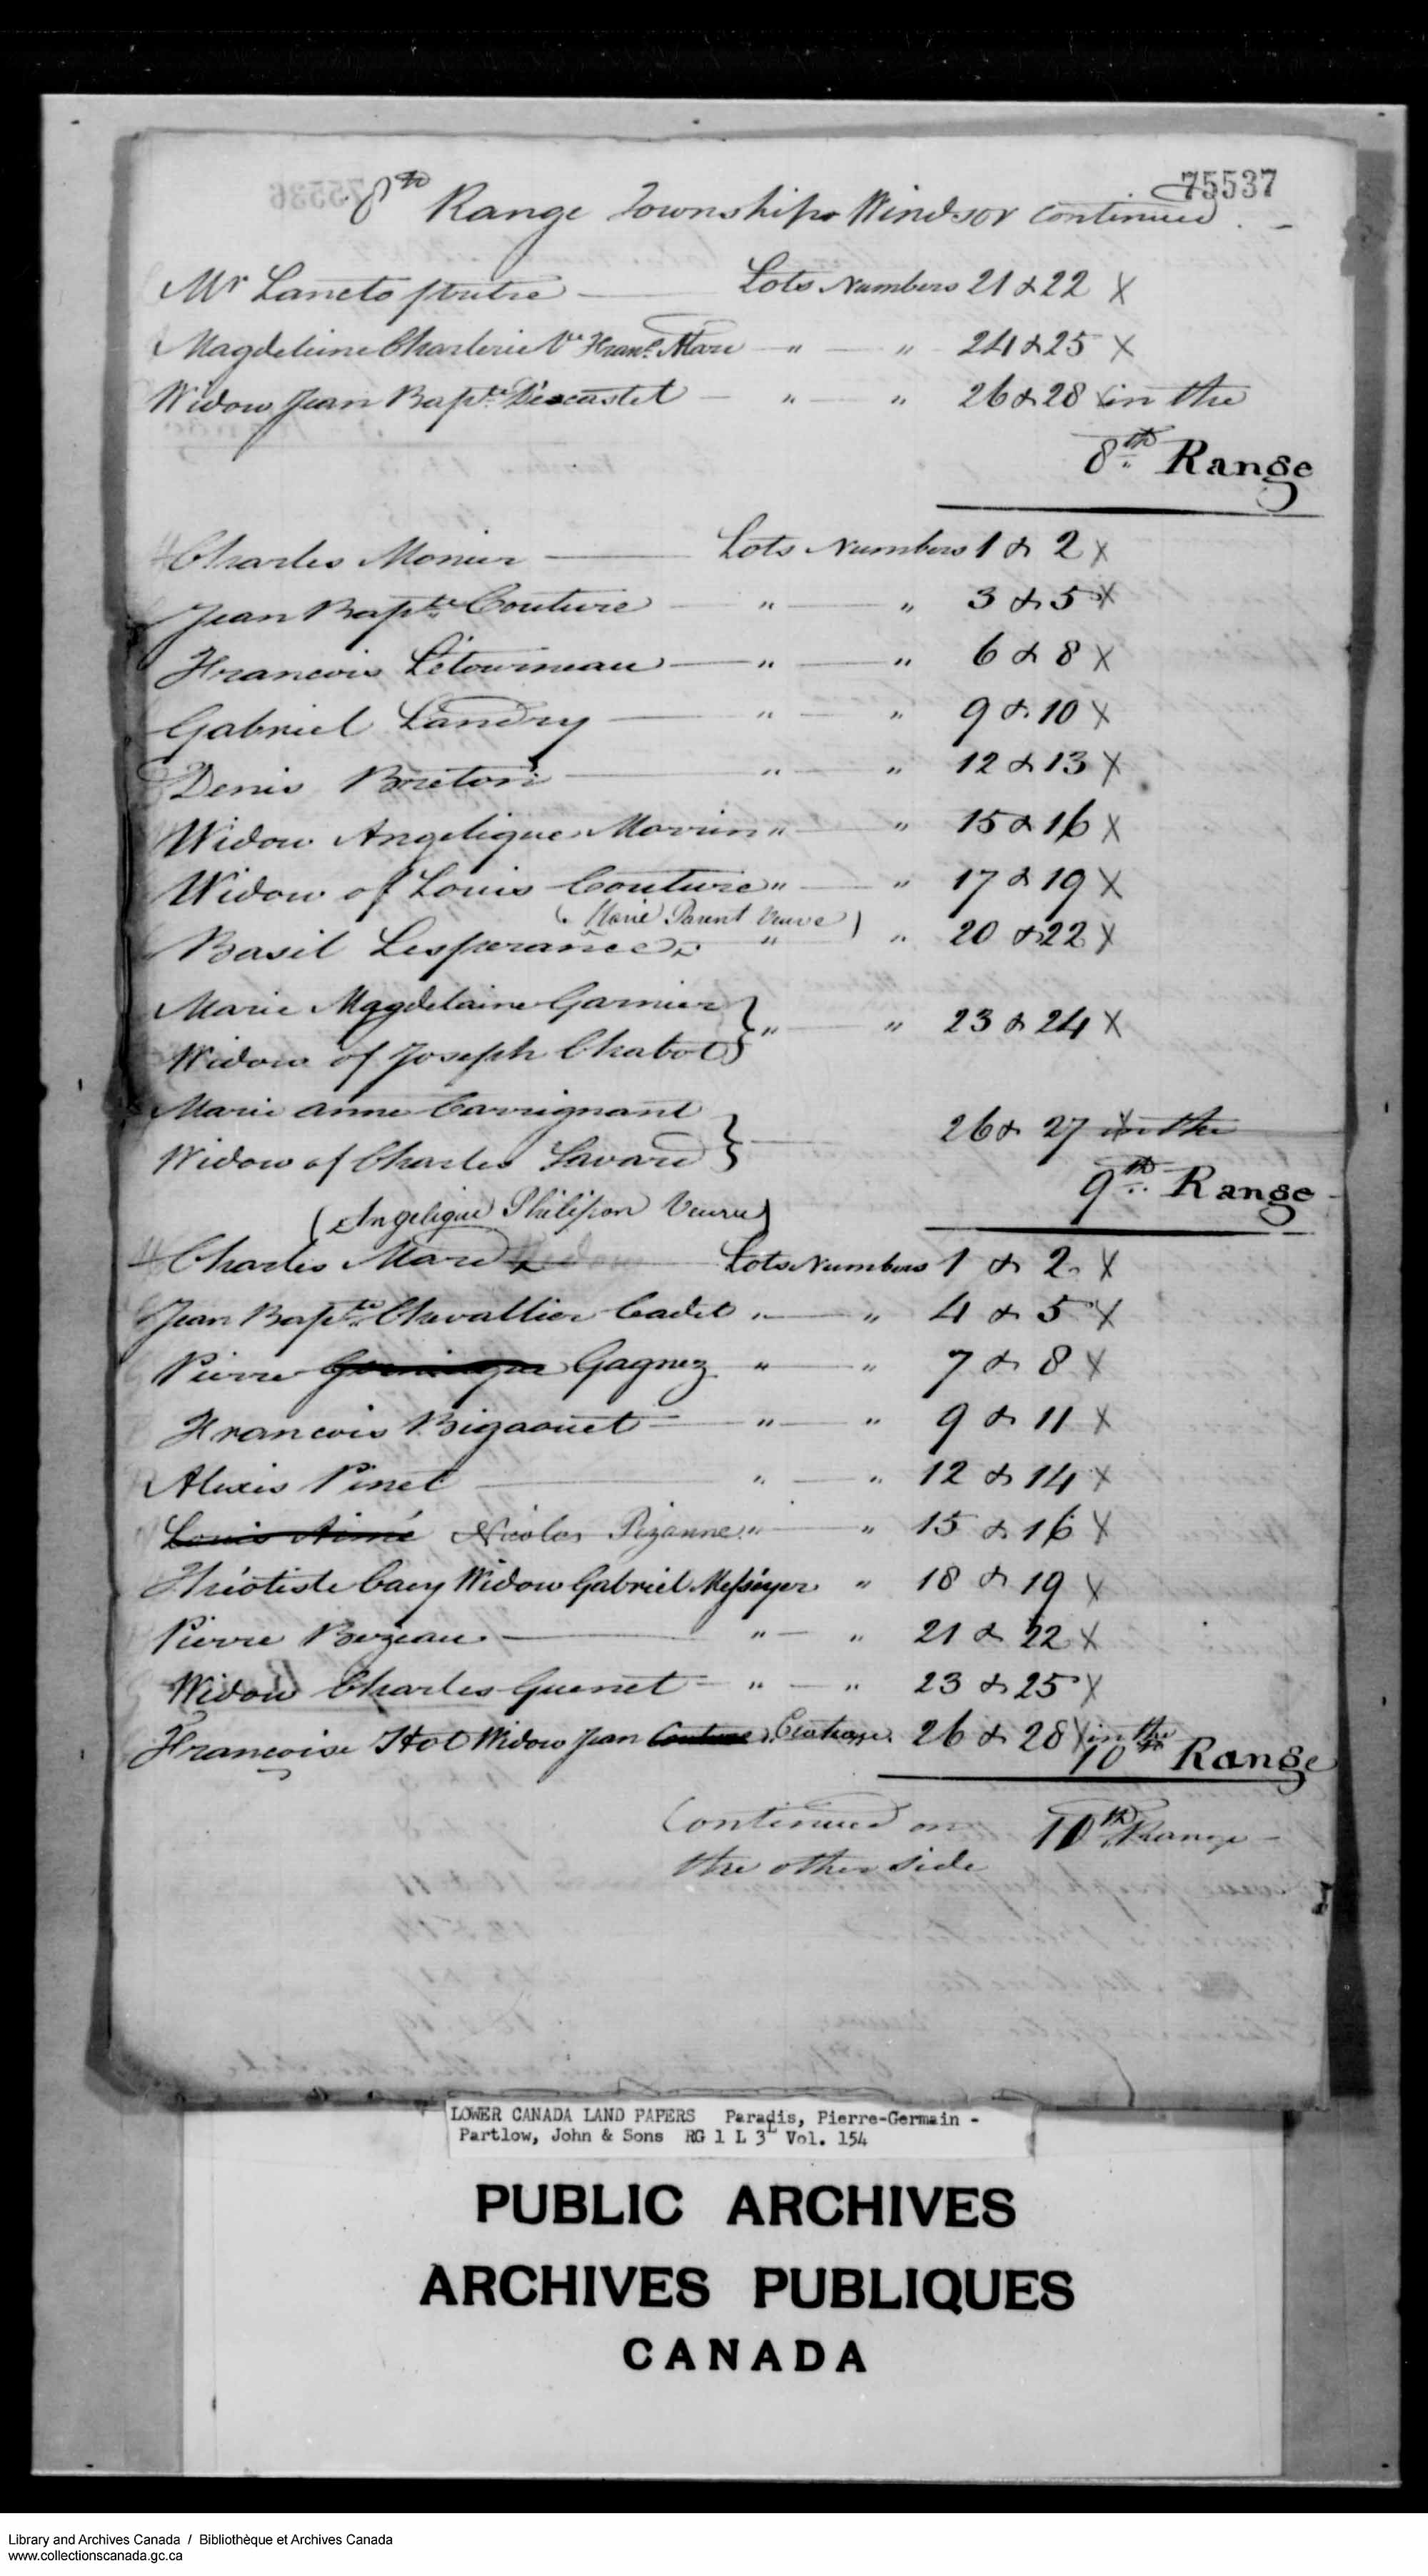 75537
8th Range Township Windsor continued
Mr Lancto pretre Lots Numbers 21 & 22 X
Magdeleine Charlerie Ve Franc. Mare " " 24 & 25 X
Widow Jean Bapte Decastel " " 26 & 28 X in the
8th Range
Charles Monier Lots Numbers 1 & 2 X
Jean Bapte Couture " " 3 & 5 X
Francois Letourneau " " 6 & 8 X
Gabriel Landry " " 9 & 10 X
Denis Breton " " 12 & 13 X
Widow Angelique Morrin " " 15 & 16 X
Widow of Louis Couture " " 17 & 19 X
(Marie Parent Veuve)
Basil Lesperance " " 20 & 22 X
Marie Magdelaine Garnier
Widow of Joseph Chabot } " " 23 & 24 X
Marie anne Carrignant
Widow of Charles Savard } 26 & 27 X in the
9th Range
(Angelique Philipon Veuve)
Charles Mare Lots Numbers 1 & 2 X
Jean Bapte Chevallier Cadet " " 4 & 5 X
Pierre Gagnez " " 7 & 8 X
Francois Bigaouet " " 9 & 11 X
Alexis Pinet " " 12 & 14 X
Louis Aimé Nicolas Pizanne " " 15 & 16 X
Théotiste Cacy Widow Gabriel Messeyer " 18 & 19 X
Pierre Bezeau " " 21 & 22 X
Widow Charles Guenet " " 23 & 25 X
Francoise Hot Widow Jean Couture 26 & 28 X in the
10th Range
Continued on 10th Range
the other side
LOWER CANADA LAND PAPERS Paradis, Pierre-Germain -
Partlow, John & Sons RG 1 L 3L Vol. 154
PUBLIC ARCHIVES
ARCHIVES PUBLIQUES
CANADA
Library and Archives Canada / Bibliothèque et Archives Canada
www.collectionscanada.gc.ca